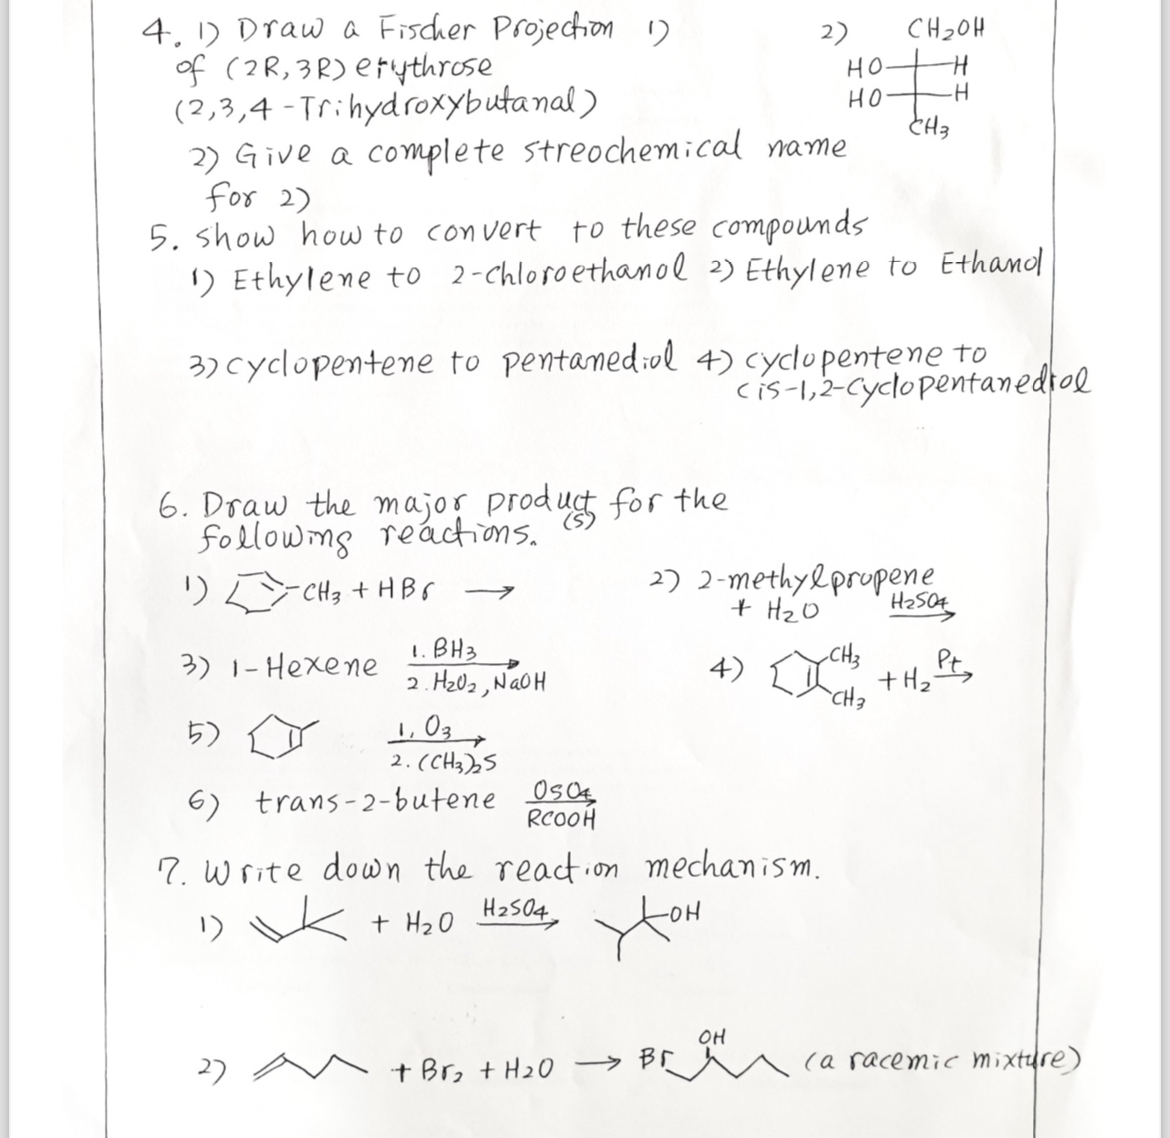 4. 1) Draw a Fischer Projection 1)
of (2R, 3R) erythrose
(2,3,4-Trihydroxybutanal)
2) CH2OH
HO H
HO H
CH3
2) Give a complete streochemical name
for 2)
5. show how to convert to these compounds
1) Ethylene to 2-chloroethanol 2) Ethylene to Ethanol
3) cyclopentene to pentanediol 4) cyclopentene to
cis-1,2-cyclopentanediol
6. Draw the major product(s) for the
following reactions.
1) -CH3 + HBr →
2) 2-methylpropene
+ H2O H2SO4
3) 1-Hexene 1. BH3
2. H2O2, NaOH
4) CH3
CH3 + H2 Pt
5) 1, O3
2. (CH3)2S
6) trans-2-butene OsO4
RCOOH
7. Write down the reaction mechanism.
1) + H2O H2SO4 OH
2) + Br2 + H2O → Br OH (a racemic mixture)